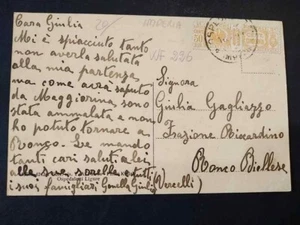 Cara Giulia
Mi è spiacciuto tanto
non averla salutata
alla mia partenza
ma come avrà saputo
da Maggiorina sono
stata ammalata e non
ho potuto tornare a
Ronco. Le mando
tanti cari saluti a lei
alle sue sorelle e tutti
i suoi famigliari Gonella Giulia
Ospedaletti Ligure
Signora
Giulia Gagliazzo
Frazione Riccardino
Ronco Biellese
(Vercelli)